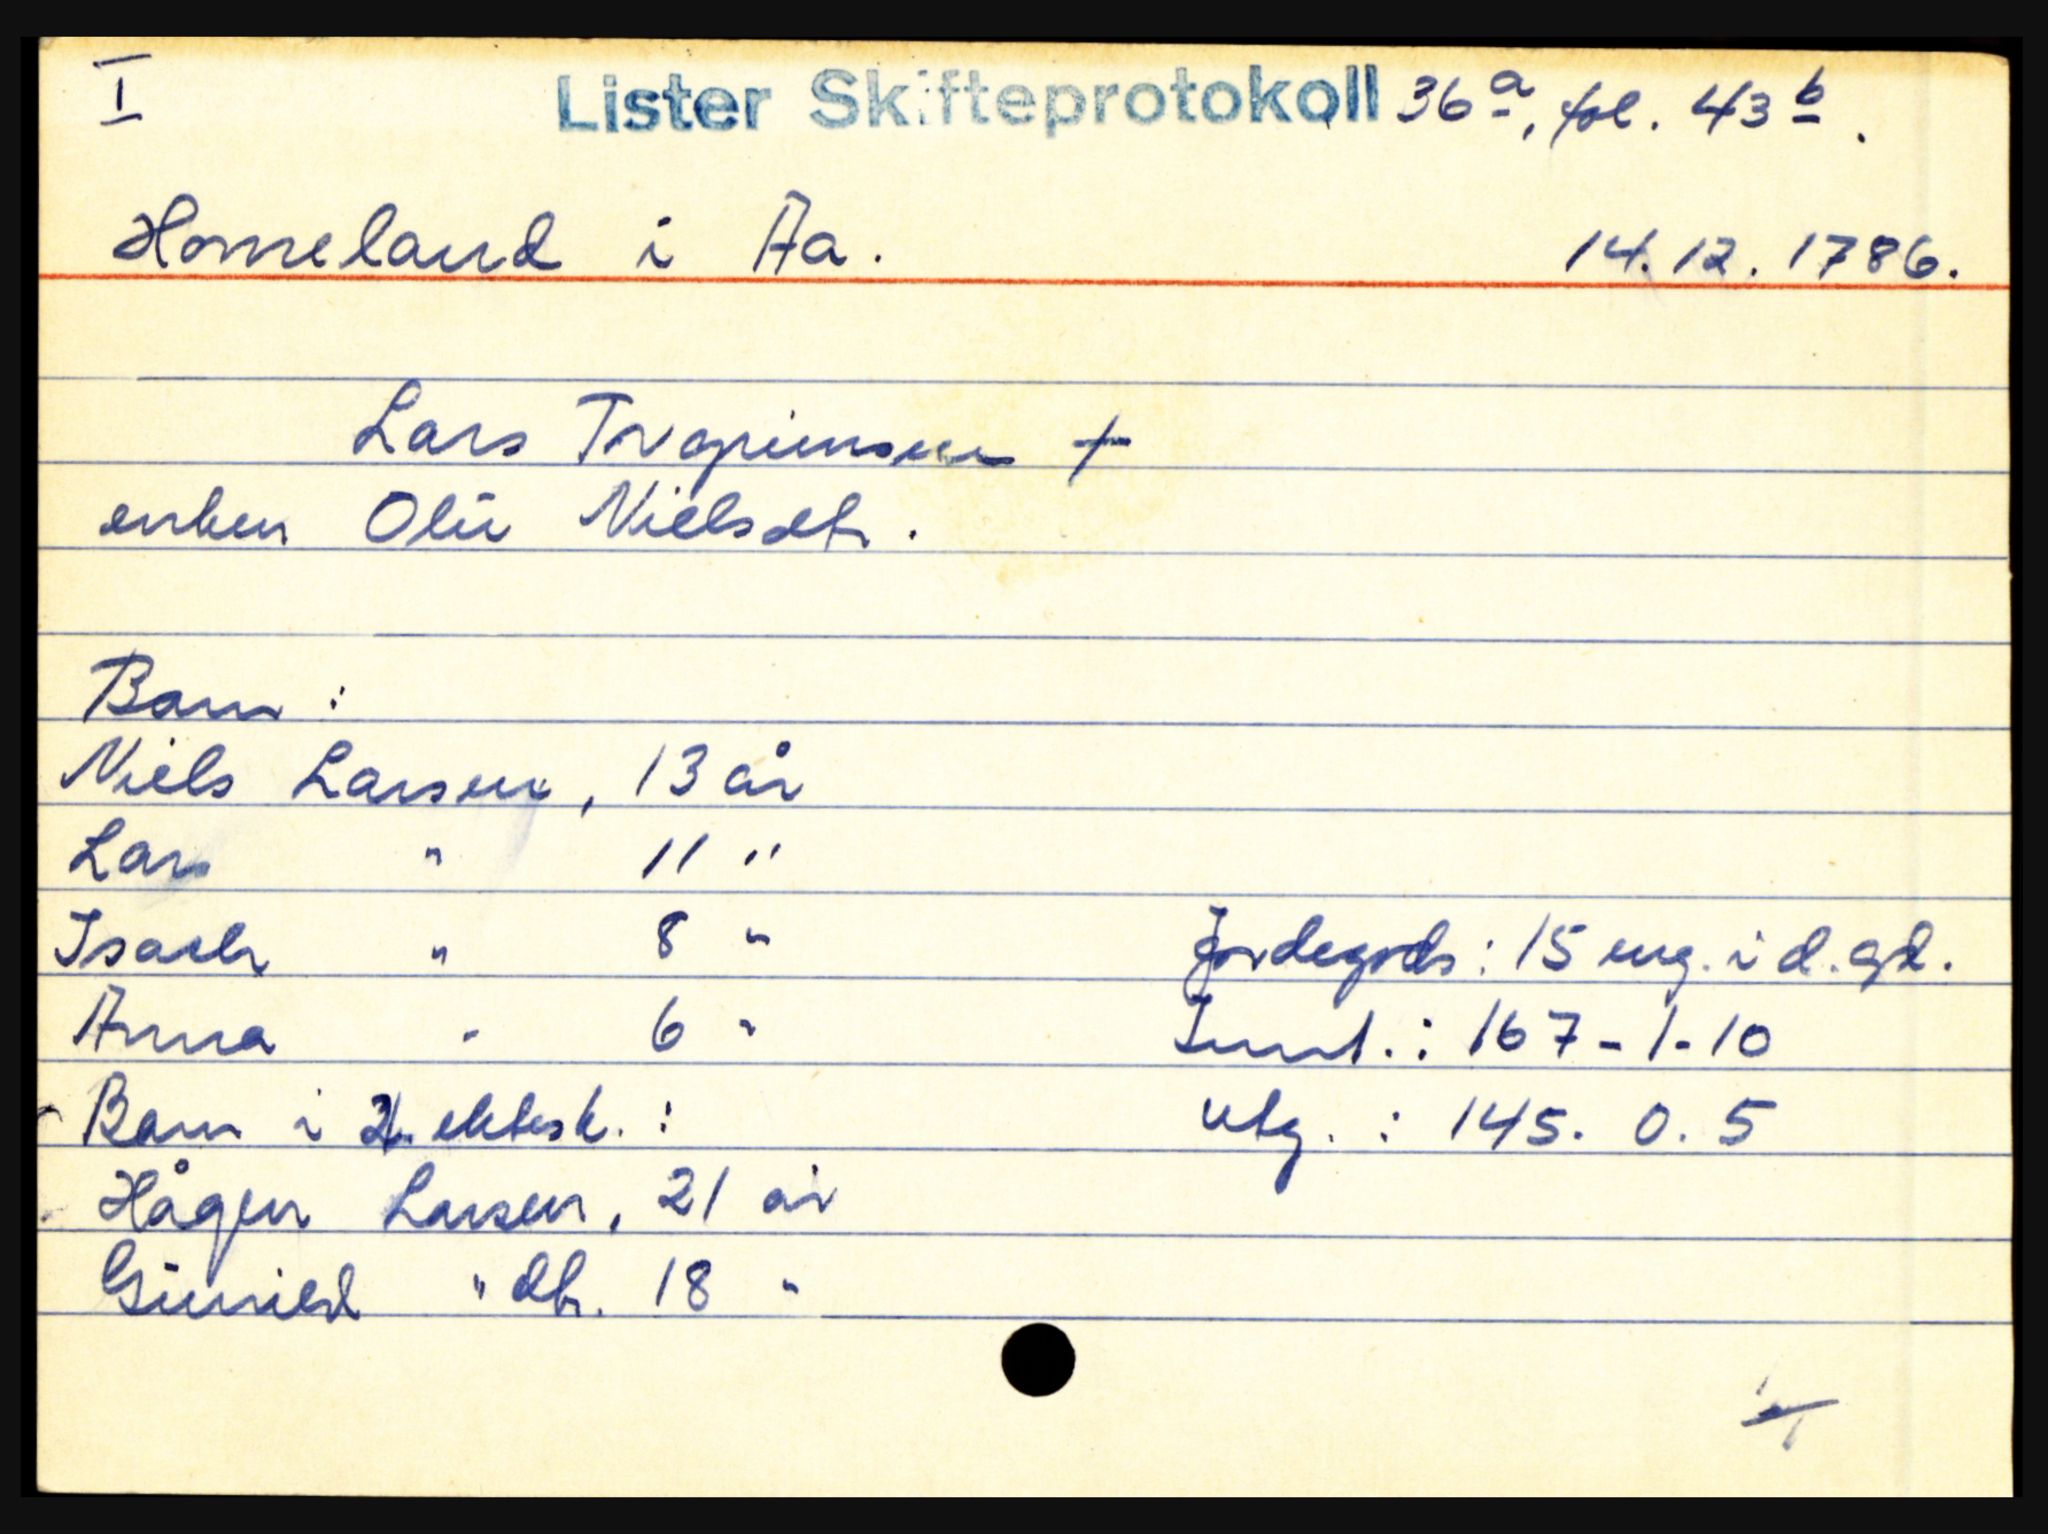 I Lister Skifteprotokoll 36a, fol. 43b.
Homeland i Aa. 14.12.1786.
Lars Torgiersen +
enken Oliv Nielsdtr.
Barn :
Niels Larsen, 13 år
Lars " 11 "
Isach " 8 " Jordegods : 15 eng. i d. gd.
Anna " 6 " Innt. : 167-1-10
Barn i 2. ektesk. : utg. : 145. 0. 5
Hågen Larsen, 21 år
Gunild " dtr. 18 "